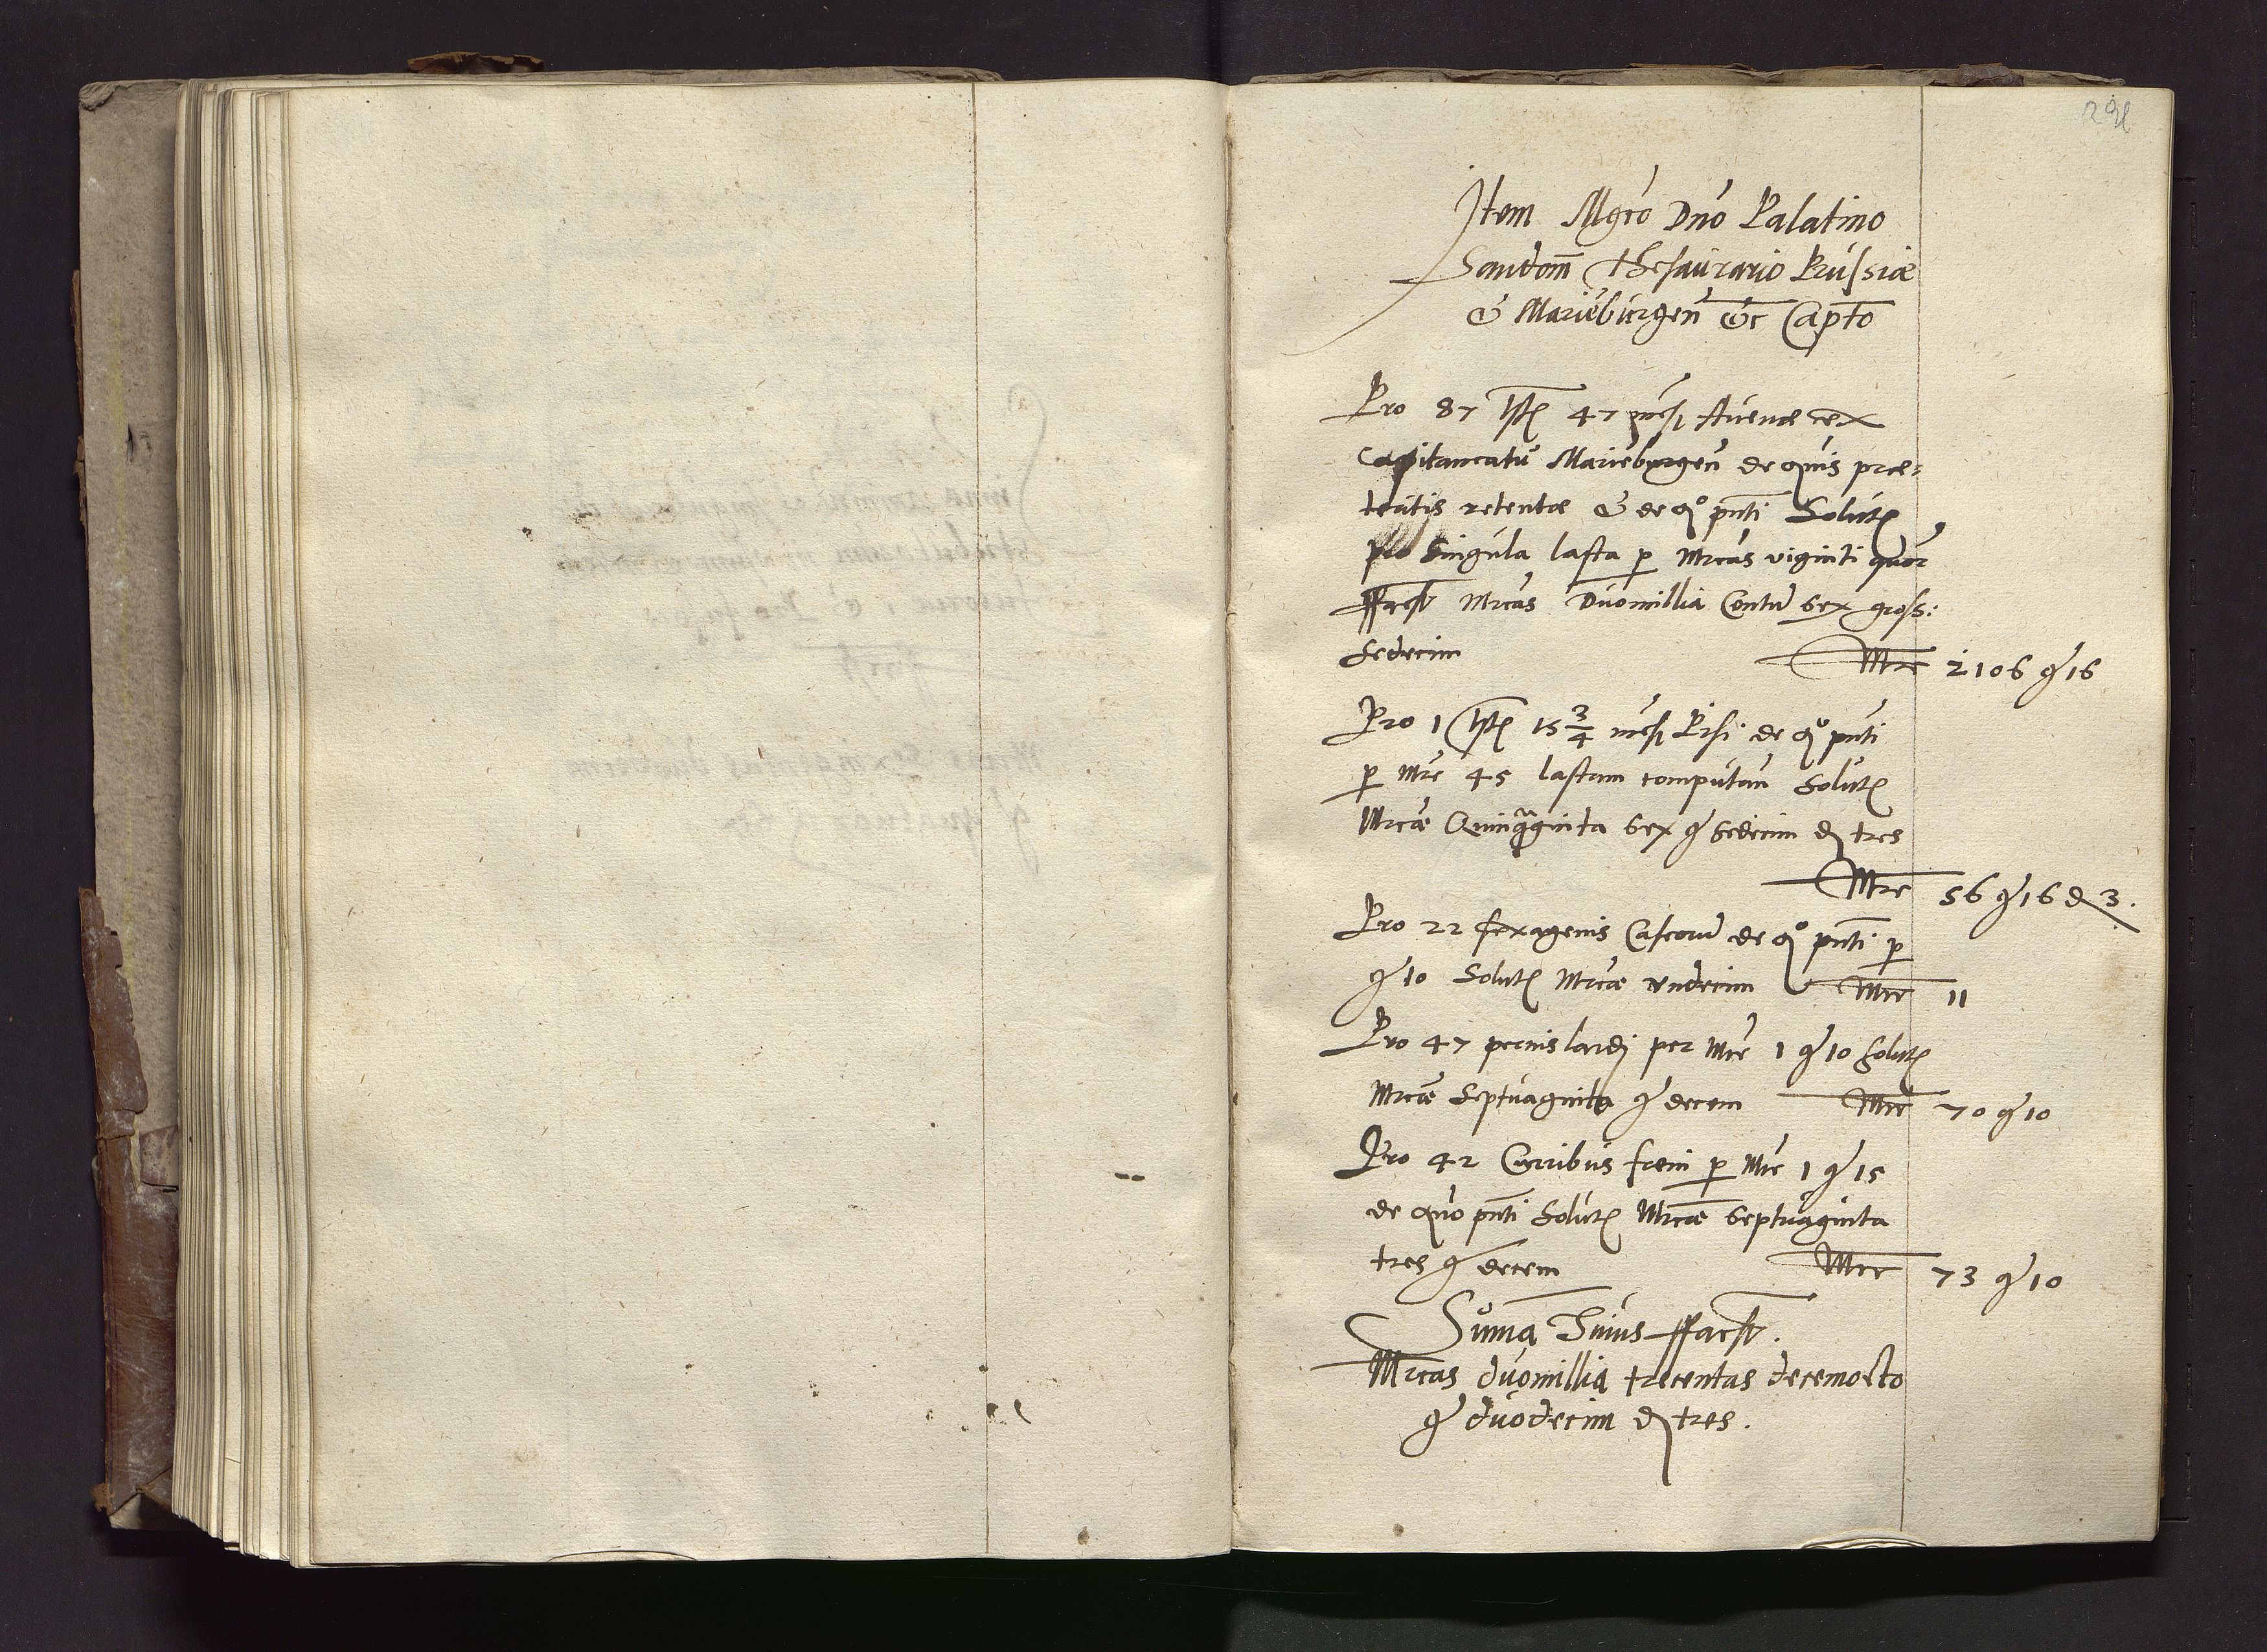 291
Item Mgco Dno Palatino
Sandom Thesaurario Prussiæ
& Marieburgen etc Capto
Pro 87 lst 47 mes Avenæ ex
Capitaneatu Marieburgen de quis præ-
teritis retentæ & de qo pnti Solut
pro Singula lasta p Mrcas viginti quor
ffacit Mrcas Duomillia Centu Sex gross:
Sedecim Mrc 2106 g 16
Pro 1 lst 15 3/4 mes Pisi de qo pnti
p Mrc 45 lastam computan Solut
Mrcæ Quinquaginta Sex g Sedecim d tres
Mrc 56 g 16 d 3.
Pro 22 sexagenis Caseoru de qo pnti p
g 10 Solut Mrcæ undecim Mrc 11
Pro 47 pernis lardi per Mrc 1 g 10 Solut
Mrcæ Septuaginta g decem Mrc 70 g 10
Pro 42 Curribus feni p Mrc 1 g 15
de quo pnti Solut Mrcæ Septuaginta
tres g decem Mrc 73 g 10
Suma Huius ffacit.
Mrcas duomillia trecentas decemocto
g duodecim d tres.